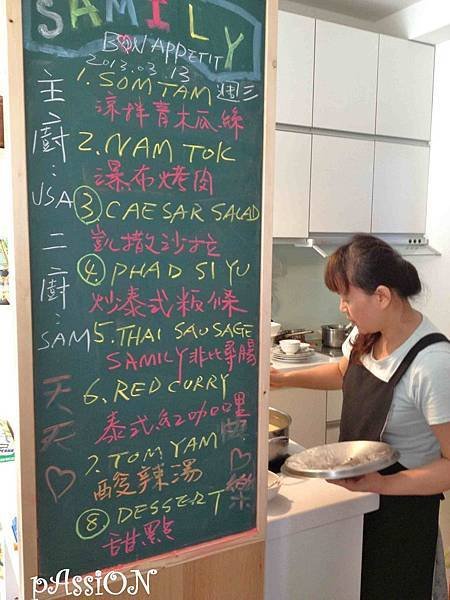 SAMILY
BON APPETIT
2013.03.13
週三
1. SOM TAM
涼拌青木瓜絲
2. NAM TOK
瀑布烤肉
3 CAESAR SALAD
凱撒沙拉
4. PHAD SI YU
炒泰式粄條
5. THAI SAUSAGE
SAMILY非比尋腸
6. RED CURRY
泰式紅咖哩
7. TOM YAM
酸辣湯
8. DESSERT
甜點
主廚:USA
二廚:SAM
天天♡
樂
pAssiON